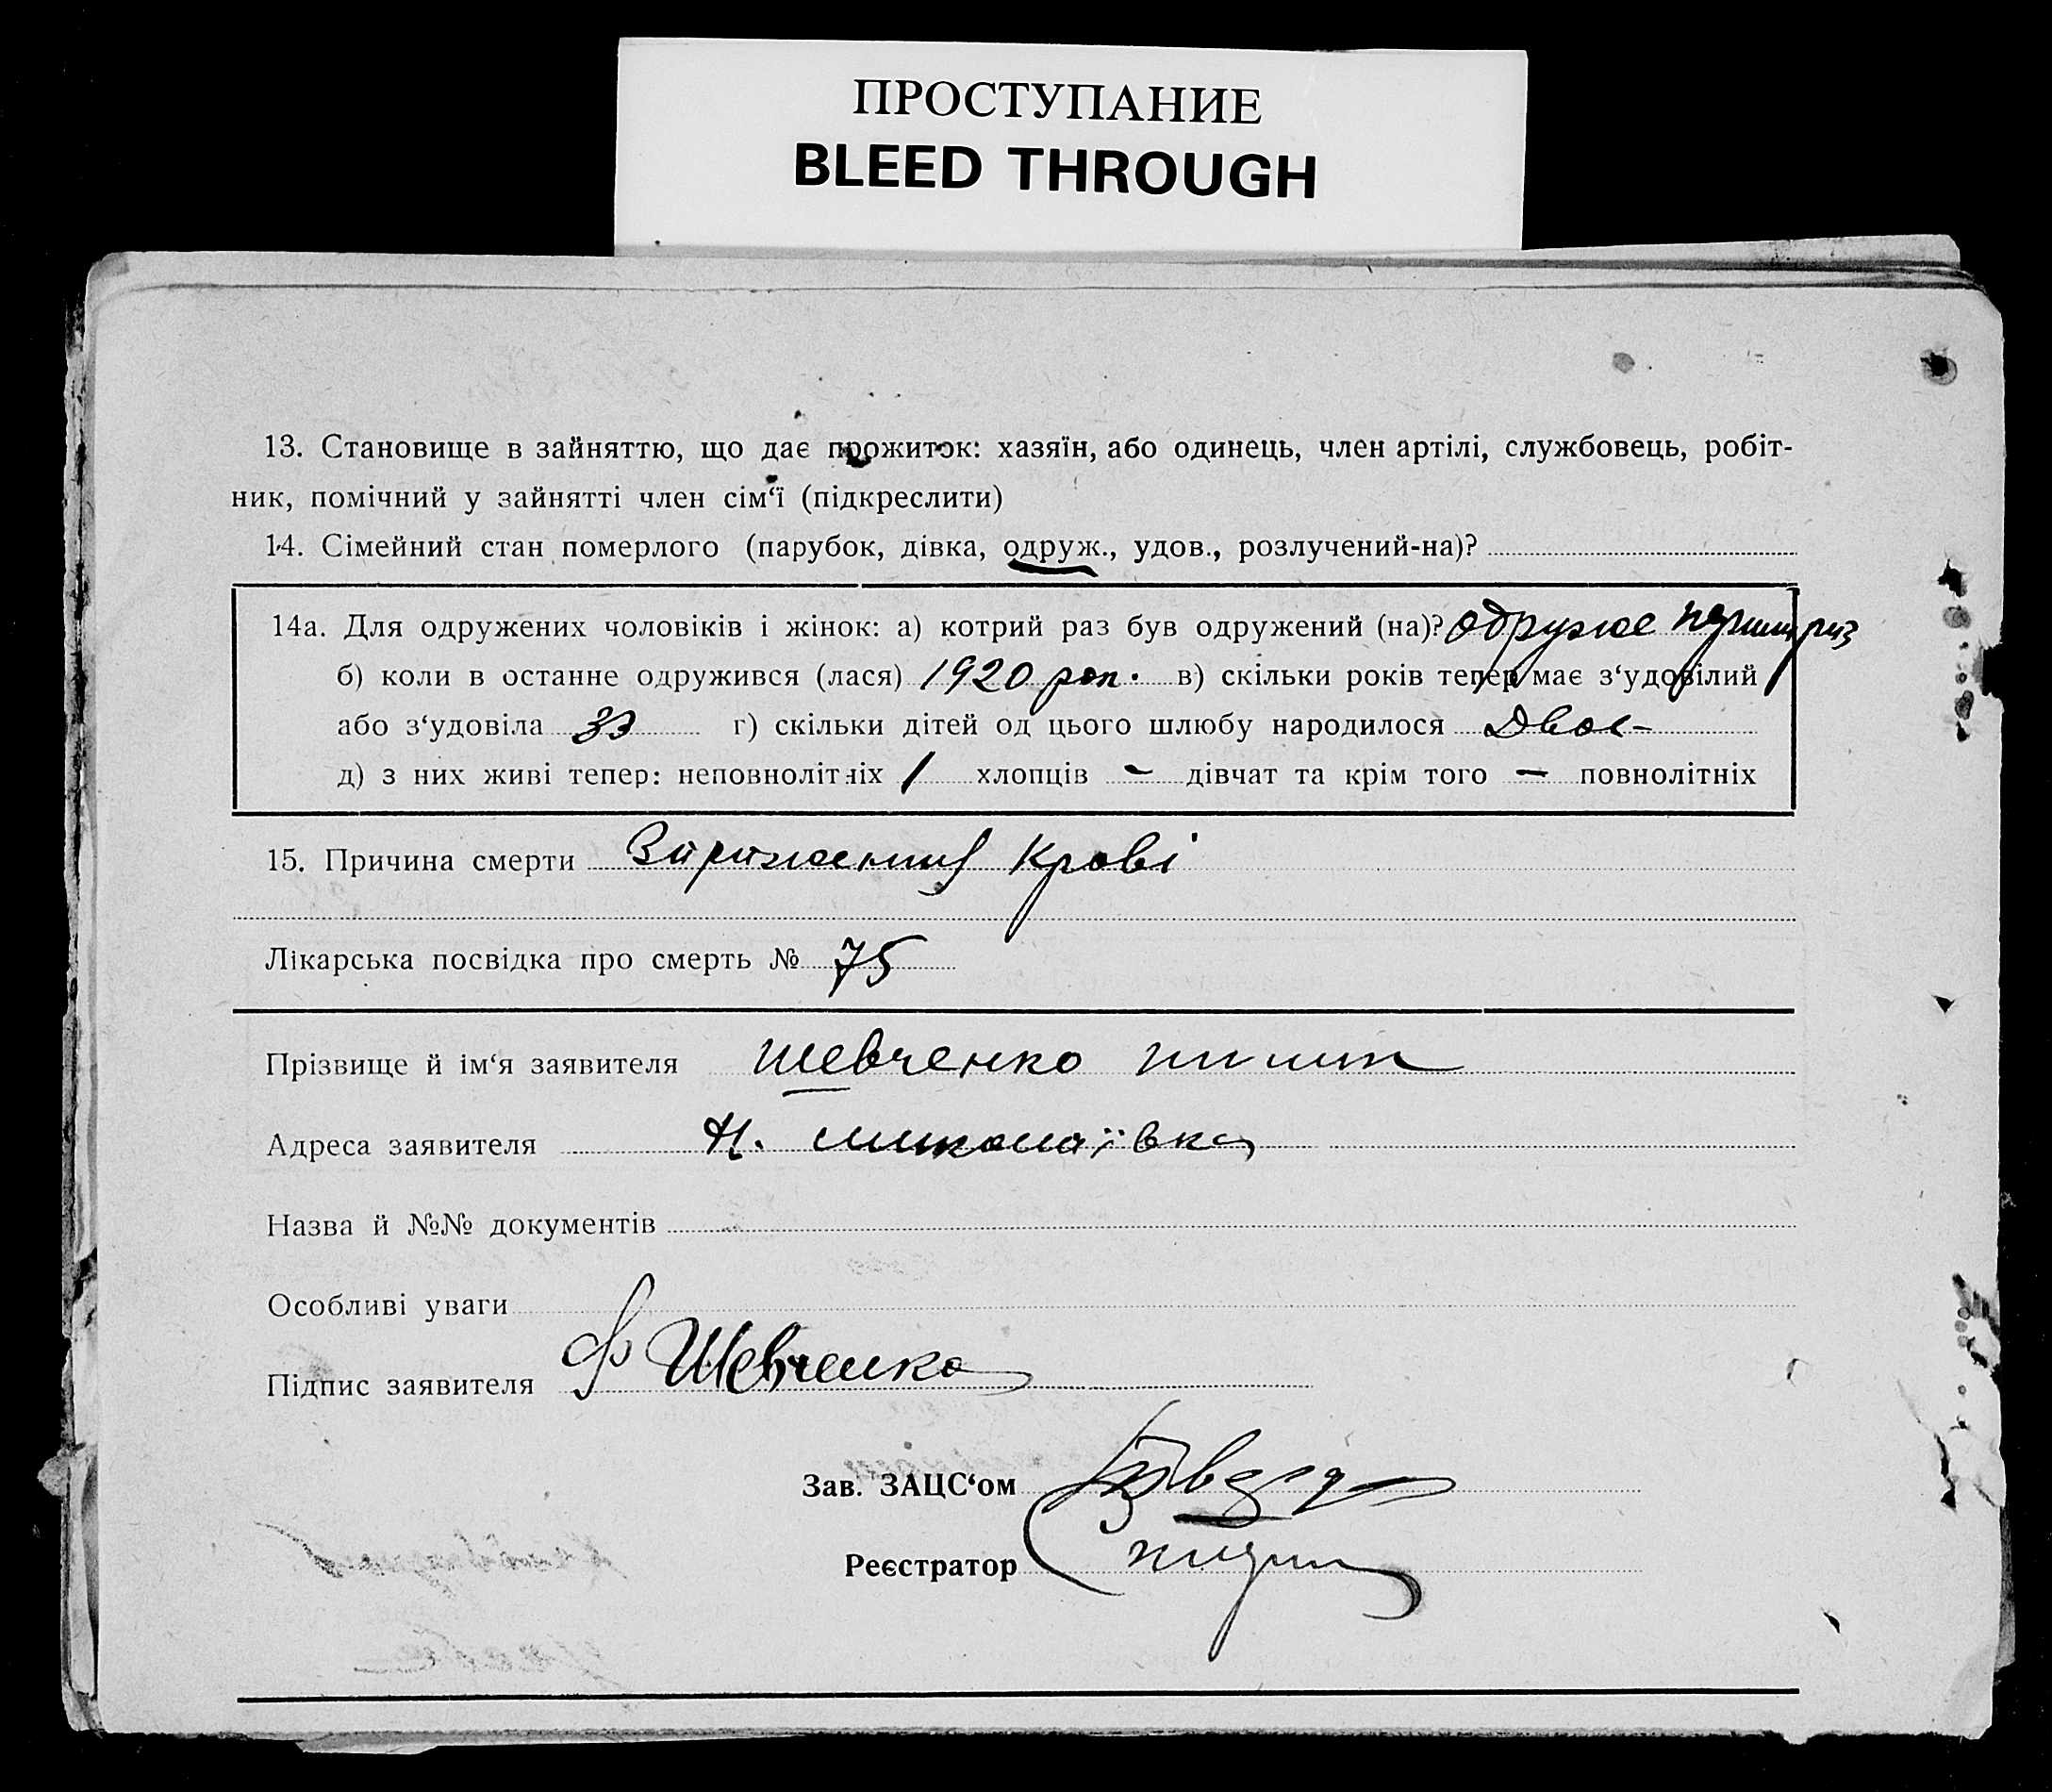 ПРОСТУПАНИЕ
BLEED THROUGH
13. Становище в зайняттю, що дає прожиток: хазяїн, або одинець, член артілі, службовець, робіт-
ник, помічний у зайнятті член сім‘ї (підкреслити)
14. Сімейний стан померлого (парубок, дівка, одруж., удов., розлучений-на)?
14а. Для одружених чоловіків і жінок: а) котрий раз був одружений (на)? одруже перший раз
б) коли в останне одружився (лася) 1920 рок. в) скільки років тепер має з‘удовілий
або з‘удовіла г) скільки дітей од цього шлюбу народилося Двоє-
д) з них живі тепер: неповнолітніх 1 хлопців - дівчат та крім того - повнолітніх
15. Причина смерти Зараження Крові
Лікарська посвідка про смерть № 75
Прізвище й ім‘я заявителя Шевченко
Адреса заявителя Н. Миколаївка
Назва й №№ документів
Особливі уваги
Підпис заявителя Ф Шевченко
Зав. ЗАЦС‘ом
Реєстратор